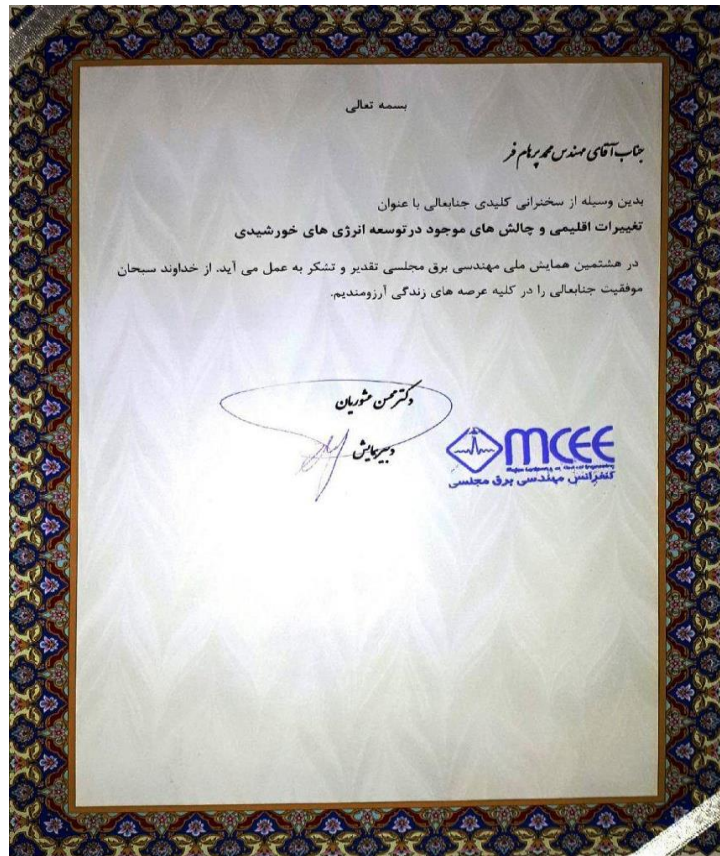 بسمه تعالی
جناب آقای مهندس محمد پرهام فر
بدین وسیله از سخنرانی کلیدی جنابعالی با عنوان
تغییرات اقلیمی و چالش های موجود در توسعه انرژی های خورشیدی
در هشتمین همایش ملی مهندسی برق مجلسی تقدیر و تشکر به عمل می آید. از خداوند سبحان
موفقیت جنابعالی را در کلیه عرصه های زندگی آرزومندیم.
دکتر محسن عشوریان
دبیر همایش
MCEE
Majlesi Conference on Electrical Engineering
کنفرانس مهندسی برق مجلسی